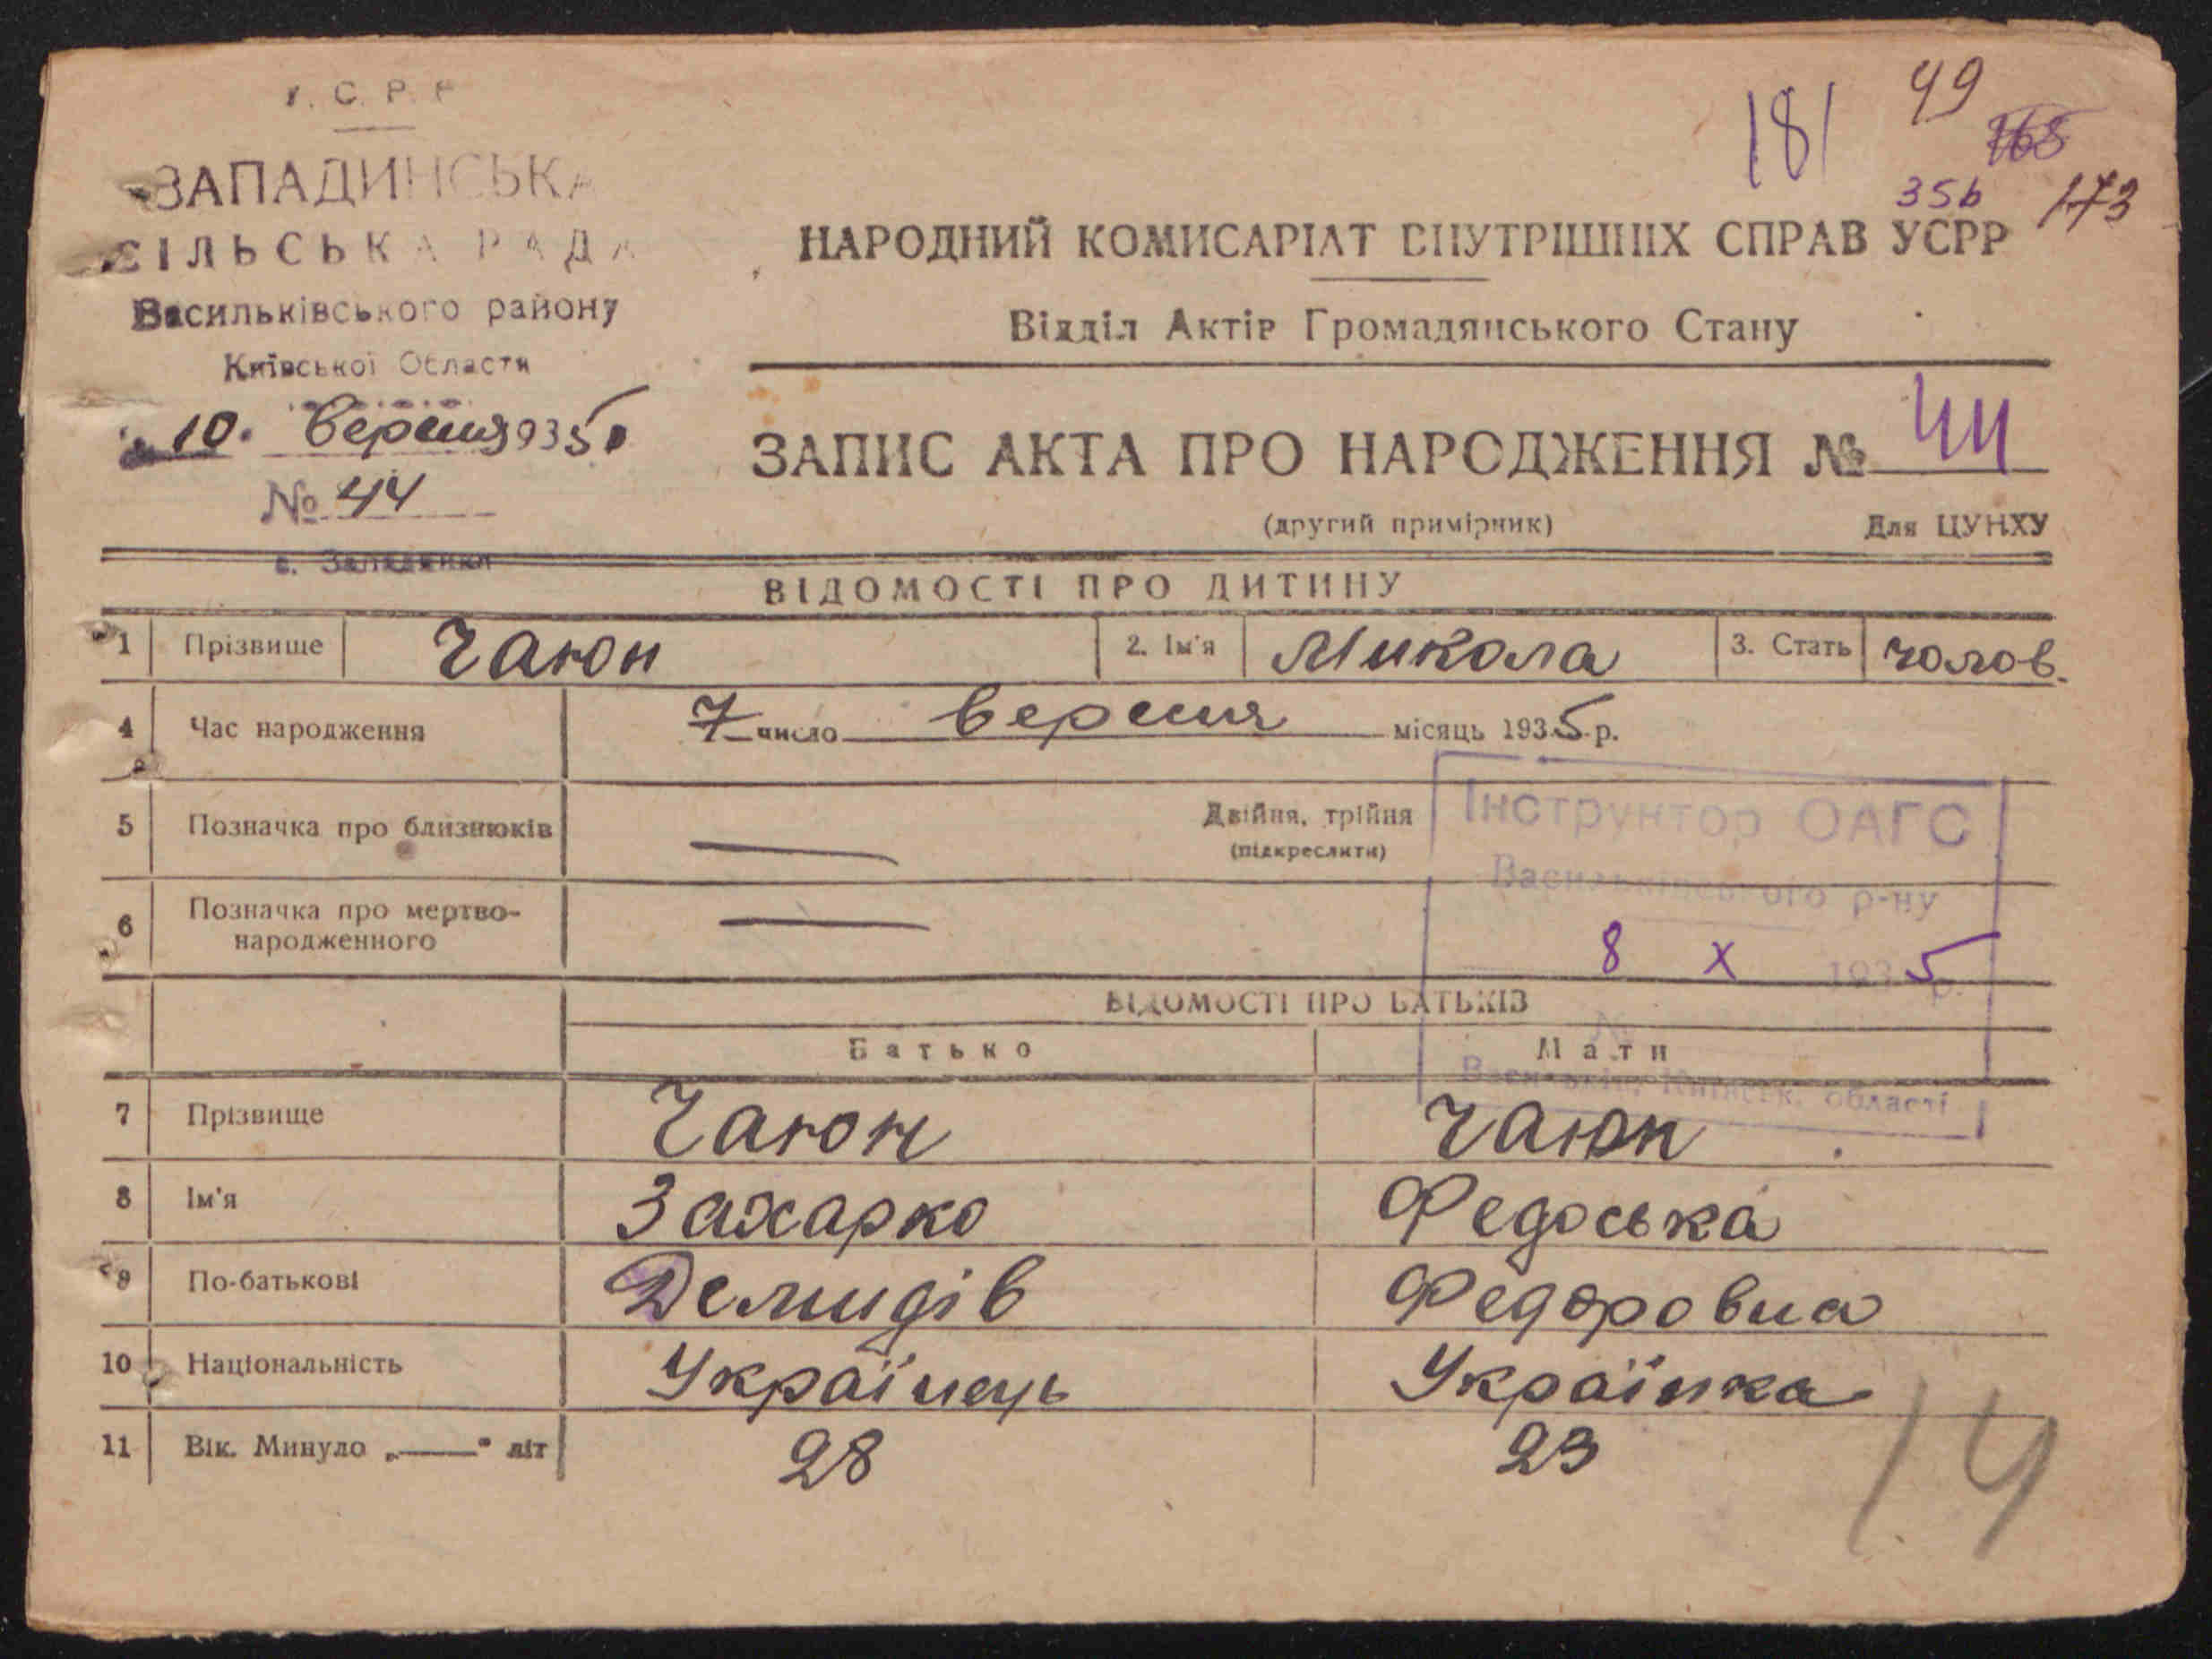 У. С. Р. Р.
ЗАПАДИНСЬКА
СІЛЬСЬКА РАДА
Васильківського району
Київської Области
10. вересня 1935
№ 44
с. Западинка
181
49
168
35б
173
НАРОДНИЙ КОМИСАРІАТ ВНУТРІШНІХ СПРАВ УСРР
Відділ Актів Громадянського Стану
ЗАПИС АКТА ПРО НАРОДЖЕННЯ № 44
(другий примірник) Для ЦУНХУ
ВІДОМОСТІ ПРО ДИТИНУ
1 Прізвище Чаюн 2. Ім'я Микола 3. Стать чолов.
4 Час народження 7 число вересня місяць 1935 р.
5 Позначка про близнюків — Двійня, трійня
(підкреслити)
6 Позначка про мертво-
народженного —
Інструктор ОАГС
Васильківського р-ну
8 X 1935 р.
№
Васильків, Київськ. області
ВІДОМОСТІ ПРО БАТЬКІВ
Батько Мати
7 Прізвище Чаюн Чаюн
8 Ім'я Захарко Федоська
9 По-батькові Демидів Федоровна
10 Національність Українець Українка
11 Вік. Минуло „——“ літ 28 23
14